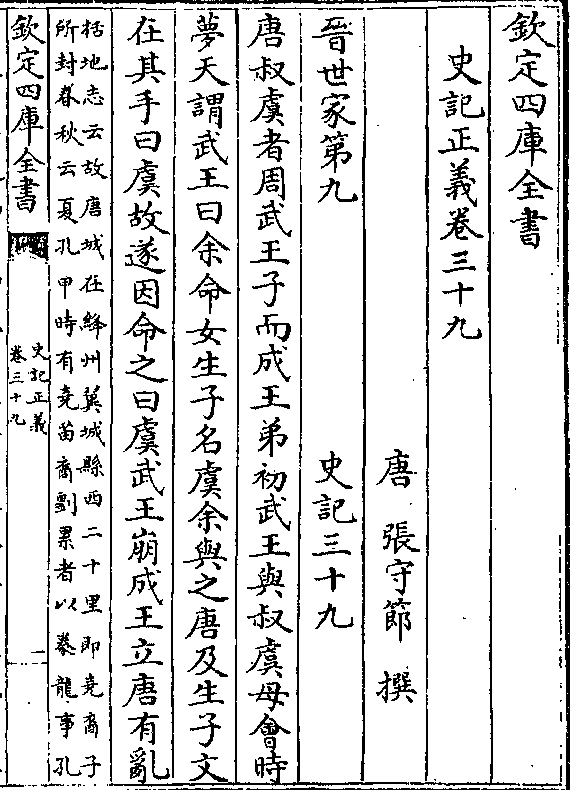 欽定四庫全書
史記正義卷三十九
唐 張守節 撰
晉世家第九 史記三十九
唐叔虞者周武王子而成王弟初武王與叔虞母會時
夢天謂武王曰余命女生子名虞余與之唐及生子文
在其手曰虞故遂因命之曰虞武王崩成王立唐有亂
括地志云故唐城在絳州翼城縣西二十里即堯裔子
所封春秋云夏孔甲時有堯苗裔劉累者以豢龍事孔
欽定四庫全書
史記正義
卷三十九
一